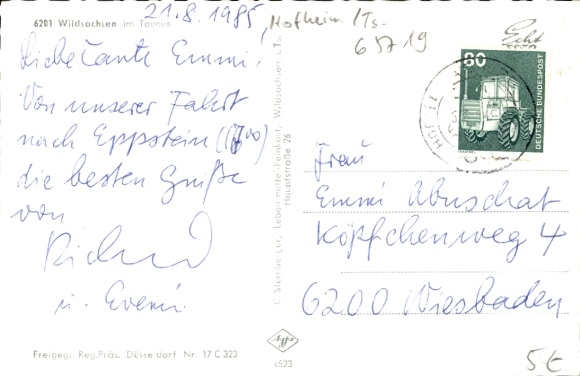 6201 Wildsachsen im Taunus
21.8.1985, Hofheim/Ts.
65719
Liebe Tante Emmi!
Von unserer Fahrt
nach Eppstein
die besten Grüße
von
Richard
u. Everni.
Freigeg. Reg.Präs. Düsseldorf Nr. 17 C 323
Lebensmittel-Feinkost, Wildsachsen i. Ts.
Hauptstraße 26
s523
Echt
80
DEUTSCHE BUNDESPOST
Frau
Emmi Abuschat
Köpfchenweg 4
6200 Wiesbaden
5€